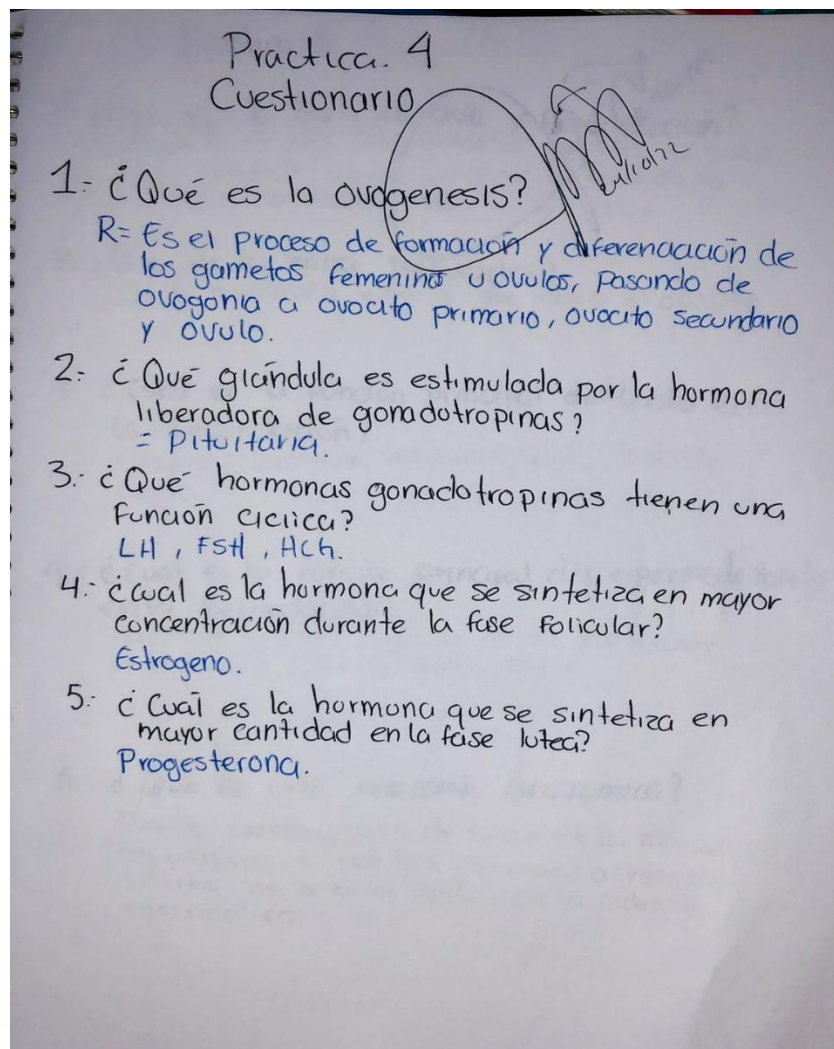 Practica. 4
Cuestionario
1.- ¿Qué es la ovogenesis?
R= Es el proceso de formación y diferenciación de
los gametos femenino u ovulos, Pasando de
ovogonia a ovocito primario, ovocito secundario
y ovulo.
2.- ¿Qué glándula es estimulada por la hormona
liberadora de gonadotropinas?
= Pituitaria.
3.- ¿Qué hormonas gonadotropinas tienen una
Función ciclica?
LH, FSH, HCh.
4.- ¿cual es la hormona que se sintetiza en mayor
concentración durante la fase Folicular?
Estrogeno.
5.- ¿Cuál es la hormona que se sintetiza en
mayor cantidad en la fase lutea?
Progesterona.